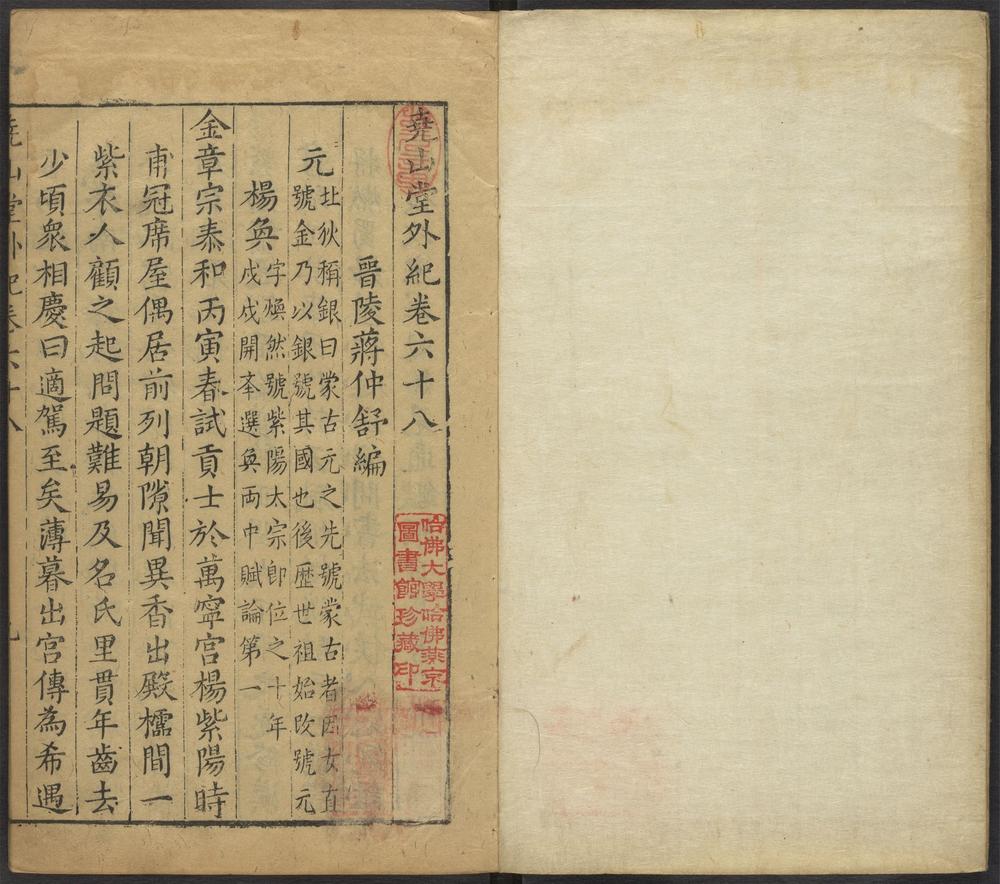 堯山堂外紀卷六十八
晉陵蔣仲舒編
元
北狄稱銀曰蒙古元之先號蒙古者因女直
號金乃以銀號其國也後歷世祖始改號元
楊奐
字煥然號紫陽太宗即位之十年
戊戌開夲選奐両中賦論第一
金章宗泰和丙寅春試貢士於萬寧宮楊紫陽時
甫冠席屋偶居前列朝隙聞異香出殿櫺間一
紫衣人顧之起問題難易及名氏里貫年齒去
少頃衆相慶曰適駕至矣薄暮出宮傳為希遇
堯山堂外紀卷六十八
哈佛大學哈佛燕京
圖書館珍藏印